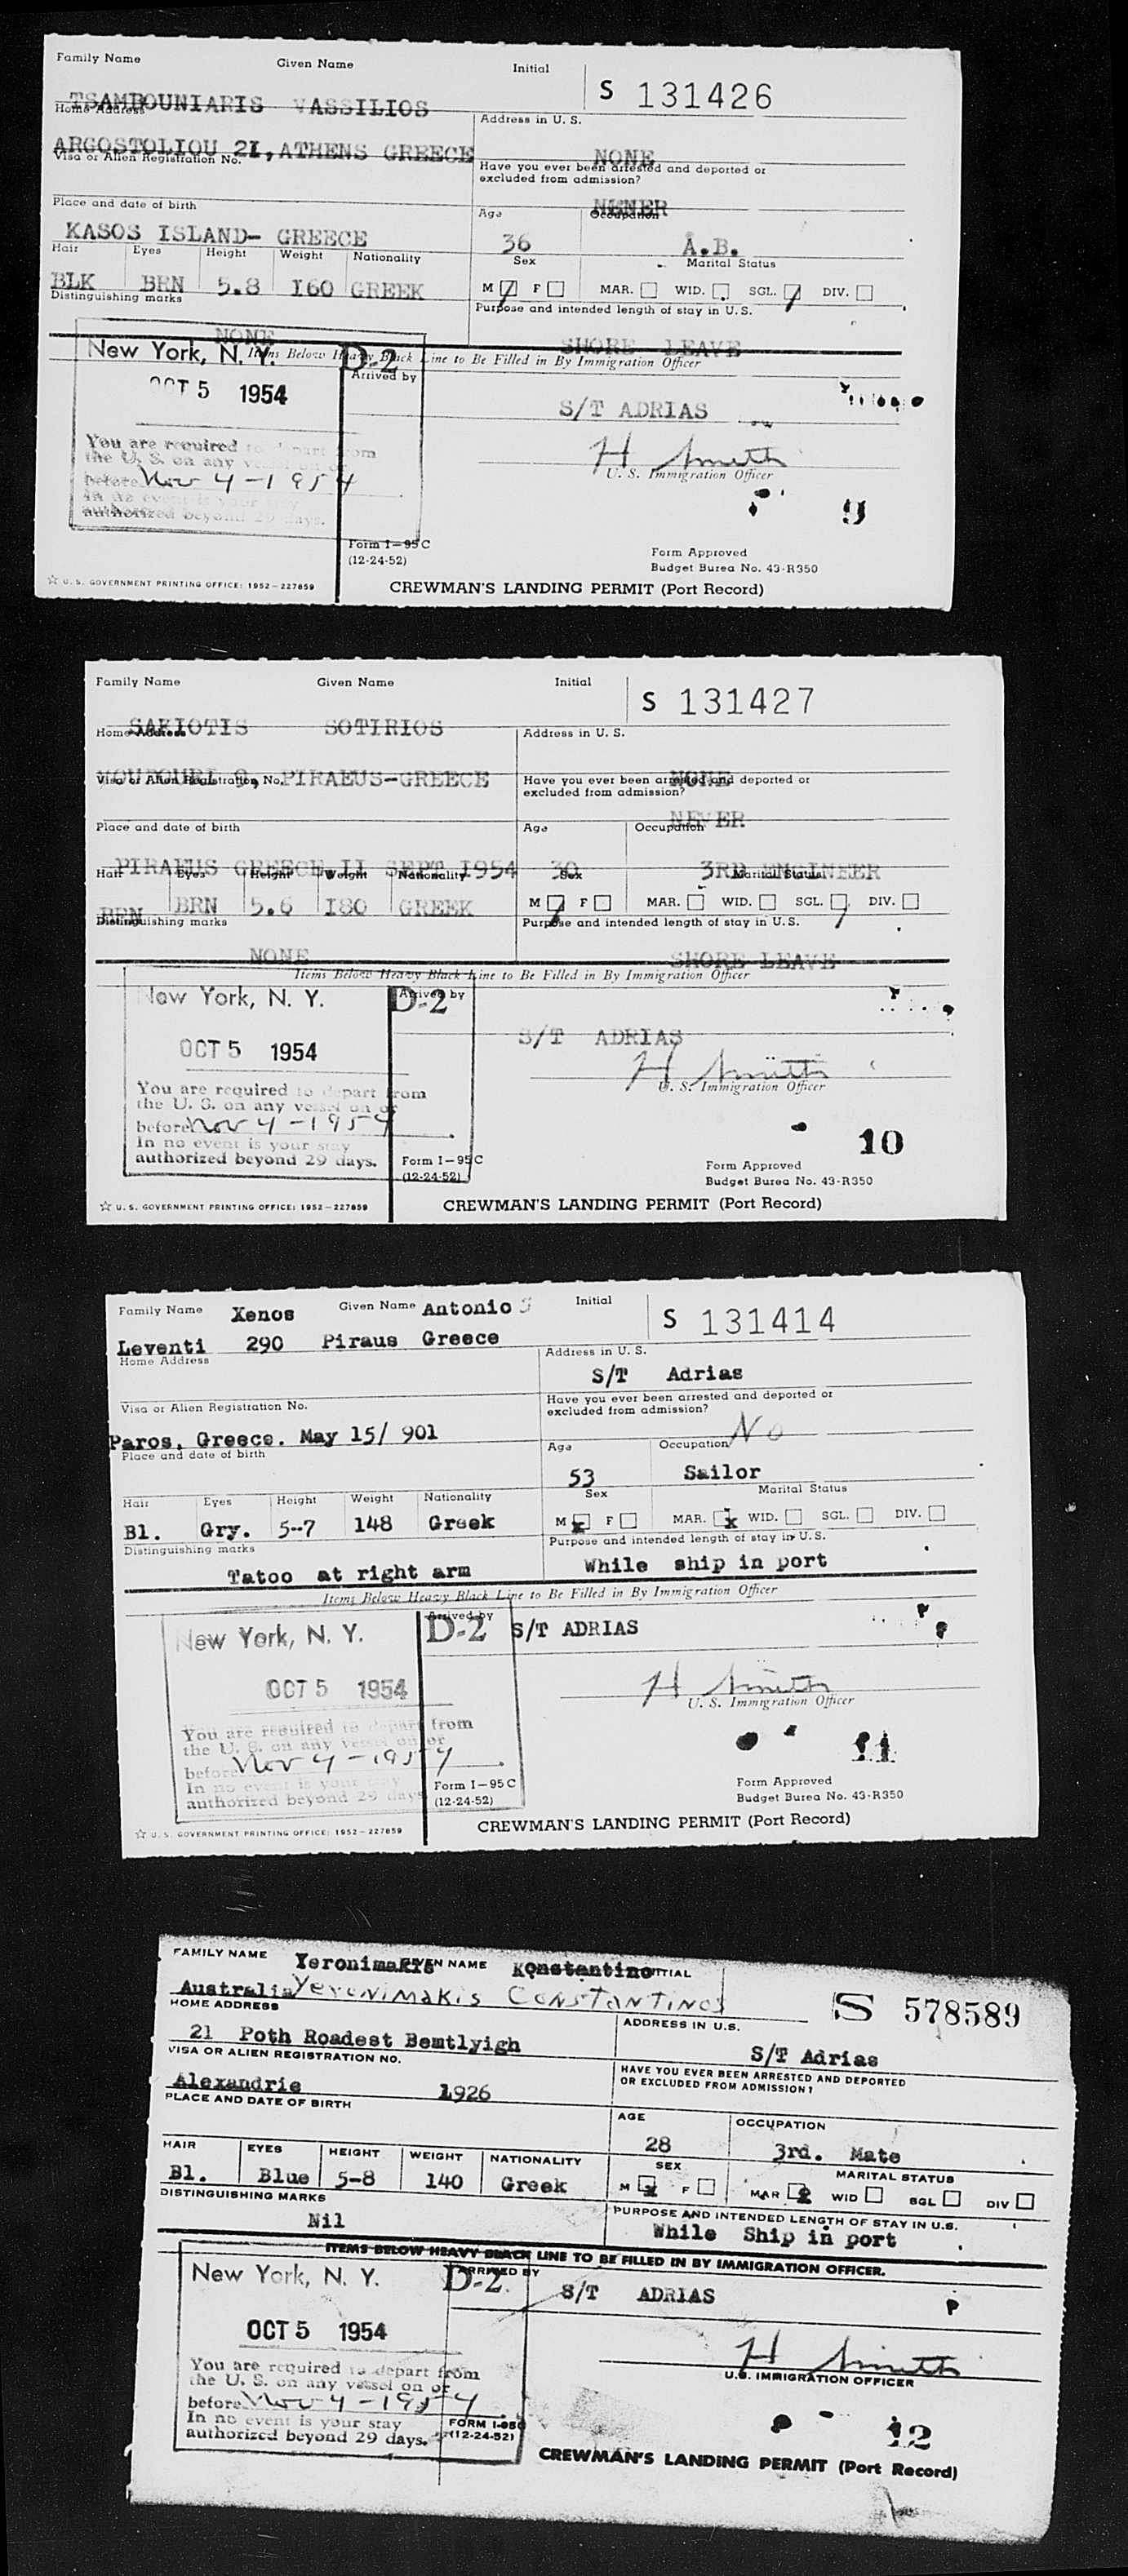 Family Name Given Name Initial S 131426
TSAMBOUNIARIS VASSILIOS
Home Address Address in U. S.
ARGOSTOLIOU 21, ATHENS GREECE NONE
Visa or Alien Registration No. Have you ever been arrested and deported or
excluded from admission?
Place and date of birth Age Occupation
KASOS ISLAND- GREECE 36 A.B.
Hair Eyes Height Weight Nationality Sex Marital Status
BLK BRN 5.8 I60 GREEK M / F MAR. WID. SGL. / DIV.
Distinguishing marks Purpose and intended length of stay in U.S.
NONE SHORE LEAVE
Items Below Heavy Black Line to Be Filled in By Immigration Officer
New York, N. Y. D-2 Arrived by
OCT 5 1954 S/T ADRIAS
You are required to depart from H Smith
the U. S. on any vessel on or U. S. Immigration Officer
before Nov 4-1954
In no event is your stay
authorized beyond 29 days. 9
Form I-95C Form Approved
(12-24-52) Budget Burea No. 43-R350
☆ U. S. GOVERNMENT PRINTING OFFICE: 1952-227859 CREWMAN'S LANDING PERMIT (Port Record)
Family Name Given Name Initial S 131427
SAKIOTIS SOTIRIOS
Home Address Address in U. S.
PIRAEUS-GREECE NONE
Visa or Alien Registration No. Have you ever been arrested and deported or
excluded from admission?
NEVER
Place and date of birth Age Occupation
PIRAEUS GREECE II SEPT I954 30 3RD ENGINEER
Hair Eyes Height Weight Nationality Sex Marital Status
BRN BRN 5.6 I80 GREEK M / F MAR. WID. SGL. / DIV.
Distinguishing marks Purpose and intended length of stay in U.S.
NONE SHORE LEAVE
Items Below Heavy Black Line to Be Filled in By Immigration Officer
New York, N. Y. D-2 Arrived by
OCT 5 1954 S/T ADRIAS
You are required to depart from H Smith
the U. S. on any vessel on or U. S. Immigration Officer
before Nov 4-1954
In no event is your stay 10
authorized beyond 29 days. Form I-95C Form Approved
(12-24-52) Budget Burea No. 43-R350
☆ U. S. GOVERNMENT PRINTING OFFICE: 1952-227859 CREWMAN'S LANDING PERMIT (Port Record)
Family Name Xenos Given Name Antonios Initial S 131414
Leventi 290 Piraus Greece
Home Address Address in U. S.
S/T Adrias
Visa or Alien Registration No. Have you ever been arrested and deported or
excluded from admission? No
Paros, Greece. May 15/ 901
Place and date of birth Age Occupation
53 Sailor
Hair Eyes Height Weight Nationality Sex Marital Status
Bl. Gry. 5-7 148 Greek M x F MAR. x WID. SGL. DIV.
Distinguishing marks Purpose and intended length of stay in U.S.
Tatoo at right arm While ship in port
Items Below Heavy Black Line to Be Filled in By Immigration Officer
New York, N. Y. D-2 Arrived by S/T ADRIAS
OCT 5 1954 H Smith
You are required to depart from U. S. Immigration Officer
the U. S. on any vessel on or
before Nov 4-1954 11
In no event is your stay Form I-95C Form Approved
authorized beyond 29 days (12-24-52) Budget Burea No. 43-R350
☆ U. S. GOVERNMENT PRINTING OFFICE: 1952-227859 CREWMAN'S LANDING PERMIT (Port Record)
FAMILY NAME Yeronimakis GIVEN NAME Konstantino INITIAL
Australia Yeronimakis Constantinos S 578589
HOME ADDRESS ADDRESS IN U.S.
21 Poth Roadest Bemtlyigh S/T Adrias
VISA OR ALIEN REGISTRATION NO. HAVE YOU EVER BEEN ARRESTED AND DEPORTED
OR EXCLUDED FROM ADMISSION?
Alexandrie 1926
PLACE AND DATE OF BIRTH AGE OCCUPATION
28 3rd. Mate
HAIR EYES HEIGHT WEIGHT NATIONALITY SEX MARITAL STATUS
Bl. Blue 5-8 140 Greek M x F MAR WID SGL DIV
DISTINGUISHING MARKS PURPOSE AND INTENDED LENGTH OF STAY IN U.S.
Nil While Ship in port
ITEMS BELOW HEAVY BLACK LINE TO BE FILLED IN BY IMMIGRATION OFFICER.
New York, N. Y. D-2. ARRIVED BY S/T ADRIAS
OCT 5 1954
You are required to depart from H Smith
the U. S. on any vessel on or U.S. IMMIGRATION OFFICER
before Nov 4-1954
In no event is your stay FORM I-95C 12
authorized beyond 29 days. (12-24-52)
CREWMAN'S LANDING PERMIT (Port Record)